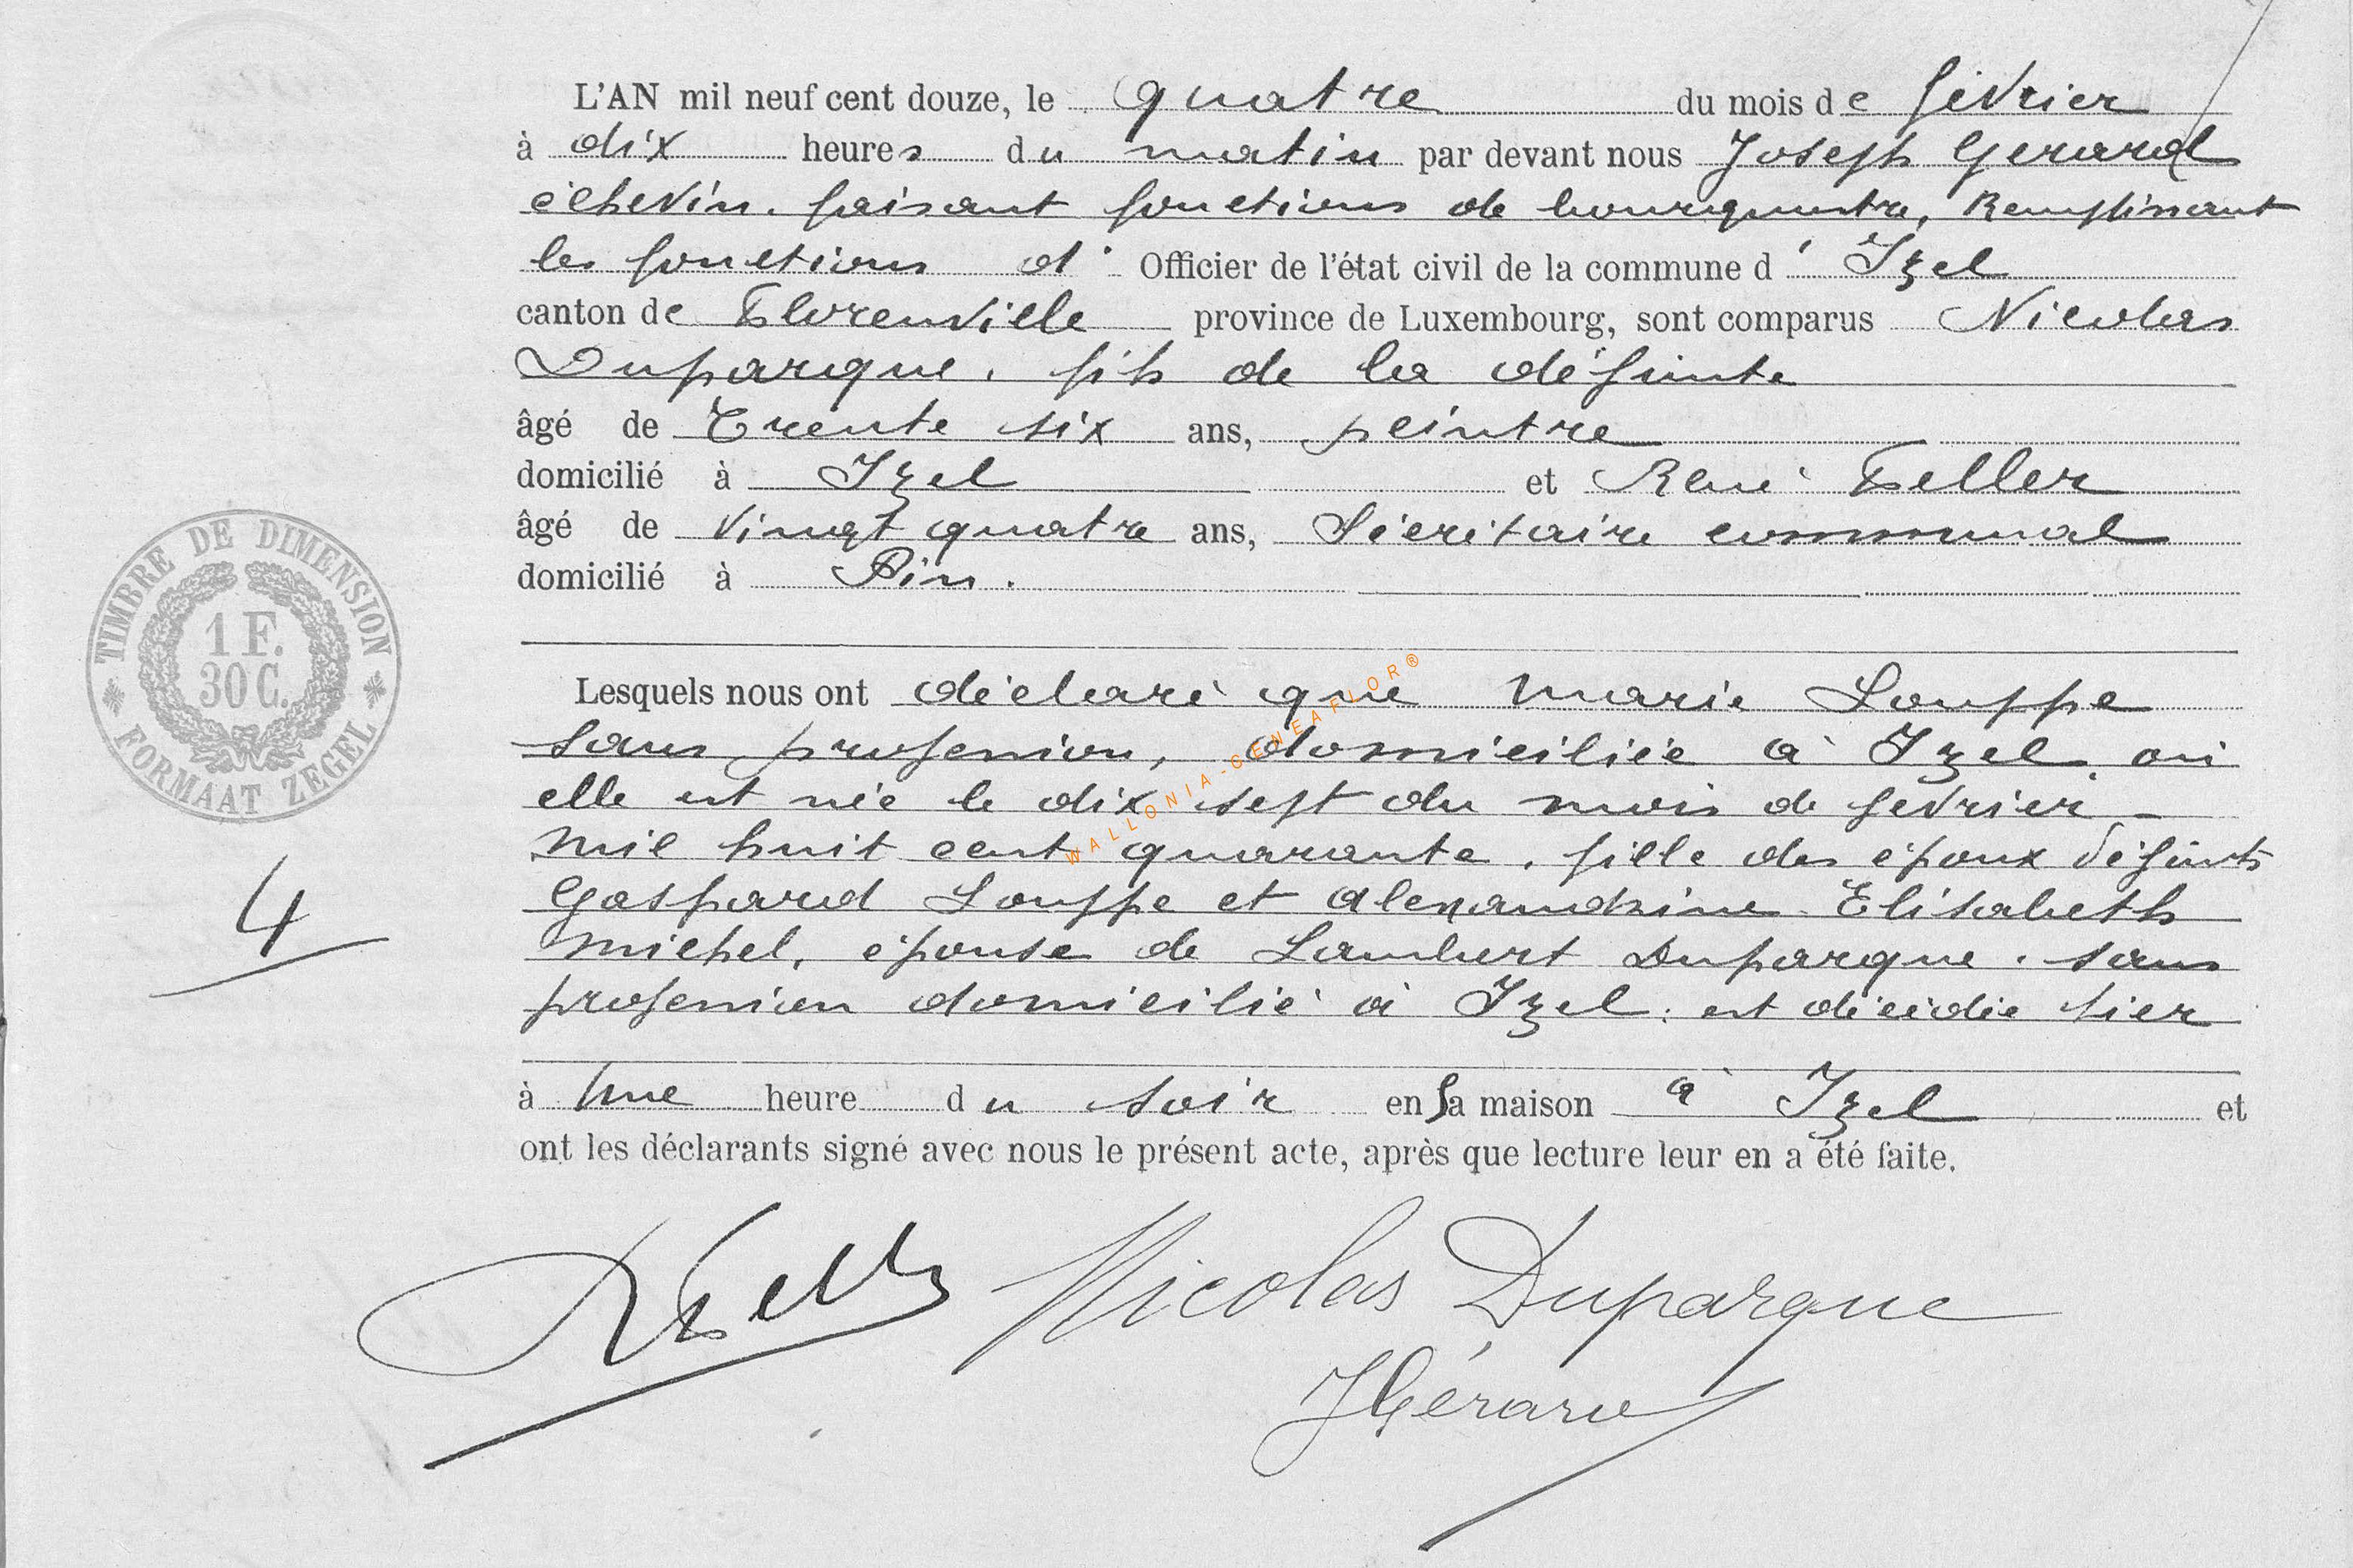 L'AN mil neuf cent douze, le quatre du mois de février
à dix heures du matin par devant nous Joseph Gerard
échevin. faisant fonctions de bourgmestre, Remplissant
les fonctions d' Officier de l'état civil de la commune d' Izel
canton de Florenville province de Luxembourg, sont comparus Nicolas
Duparque, fils de la défunte
âgé de Trente six ans, peintre
domicilié à Izel et René Feller
âgé de vingt quatre ans, Sécritaire communal
domicilié à Pin.
TIMBRE DE DIMENSION
1 F.
30 C.
FORMAAT ZEGEL
Lesquels nous ont déclaré que Marie Louppe
sans profession, domiciliée à Izel, où
elle est née le dix sept du mois de fevrier
mil huit cent quarante, fille des époux défunts
Gaspard Louppe et Alexandrine Elisabeth
Michel, épouse de Lambert Duparque, sans
profession domicilié à Izel, est décédée hier
4
à Une heure du soir en Sa maison à Izel et
ont les déclarants signé avec nous le présent acte, après que lecture leur en a été faite.
WALLONIA-GENEAFLOR®
RFeller Nicolas Duparque
JGérard